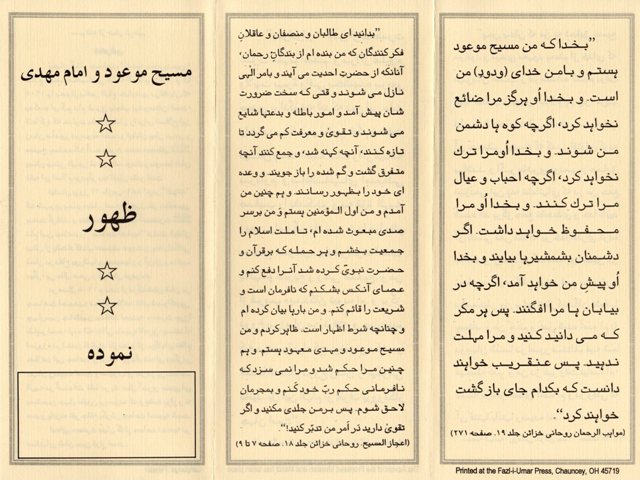 ”بخدا که من مسیح موعود
ہستم و بامن خدای (ودود) من
است. و بخدا اُو ہرگز مرا ضائع
نخواہد کرد، اگرچه کوه ہا دشمن
من شوند. و بخدا اُومرا ترك
نخواہد کرد، اگرچه احباب و عیال
مرا ترك کنند. و بخدا اُو مرا
محفوظ خواہد داشت. اگر
دشمنان بشمشیرہا بیایند و بخدا
اُو پیشِ من خواہد آمد، اگرچه در
بیابان ہا مرا افگنند. پس ہر مکر
که می دانید کنید و مرا مہلت
ندہید. پس عنقریب خواہند
دانست که بکدام جای بازگشت
خواہند کرد“.
(مواہب الرحمان روحانی خزائن جلد ۱۹. صفحه ۲۷۱)
Printed at the Fazl-i-Umar Press, Chauncey, OH 45719
”بدانید ای طالبان و منصفان و عاقلان
فکرکنندگان که من بنده ام از بندگانِ رحمان،
آنانکه از حضرتِ احدیت می آیند و بامر الٰہی
نازل می شوند و قتی که سخت ضرورت
شان پیش آمد و امور باطله و بدعتہا شایع
می شوند و تقویٰ و معرفت کم می گردد تا
تازه کنند، آنچه کہنه شد، و جمع کنند آنچه
متفرق گشت و گم شده را باز جویند. و وعده
ای خود را بظہور رسانند. و ہم چنین من
آمدم و من اول المؤمنین ہستم وَ من برسر
صدی مبعوث شده ام، تا ملت اسلام را
جمعیت بخشم و ہر حمله که برقرآن و
حضرت نبویّ کرده شد آنرا دفع کنم و
عصای آنکس بشکنم که نافرمان است و
شریعت را قائم کنم. و من بارہا بیان کرده ام
و چنانچه شرط اظہار است. ظاہر کردم و من
مسیح موعود و مہدی معہود ہستم. و ہم
چنین مرا حکم شد و مرا نمی سزد که
نافرمانی حکم ربّ خود کُنم و بمجرمان
لاحق شوم. پس برمن جلدی مکنید و اگر
تقویٰ دارید در اَمر من تدبّر کنید!“
(اعجاز المسیح. روحانی خزائن جلد ۱۸. صفحه ۷ تا ۹)
مسیح موعود و امام مهدی
ظهور
نموده